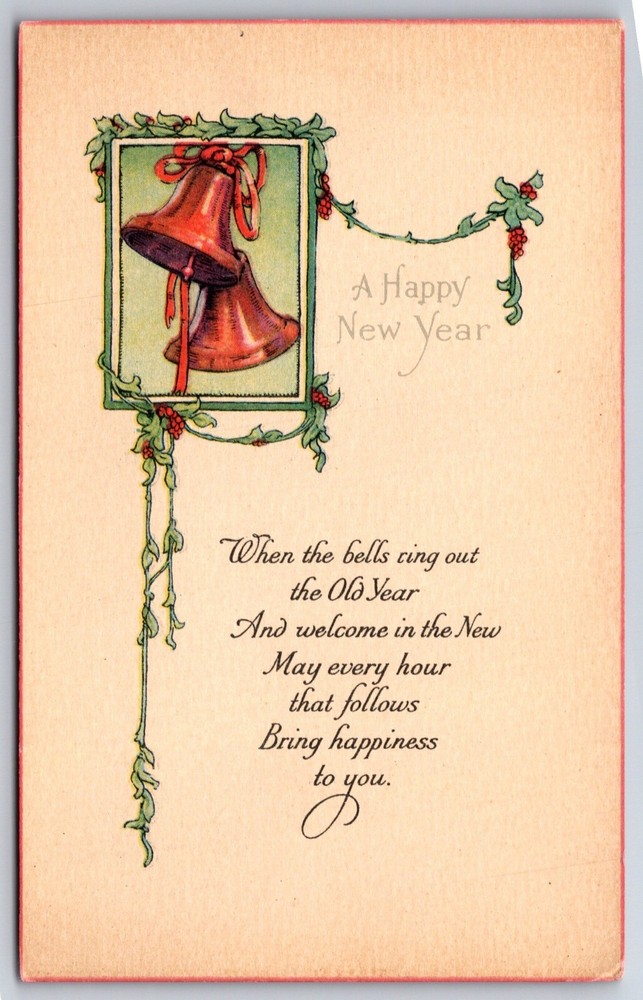 A Happy
New Year
When the bells ring out
the Old Year
And welcome in the New
May every hour
that follows
Bring happiness
to you.